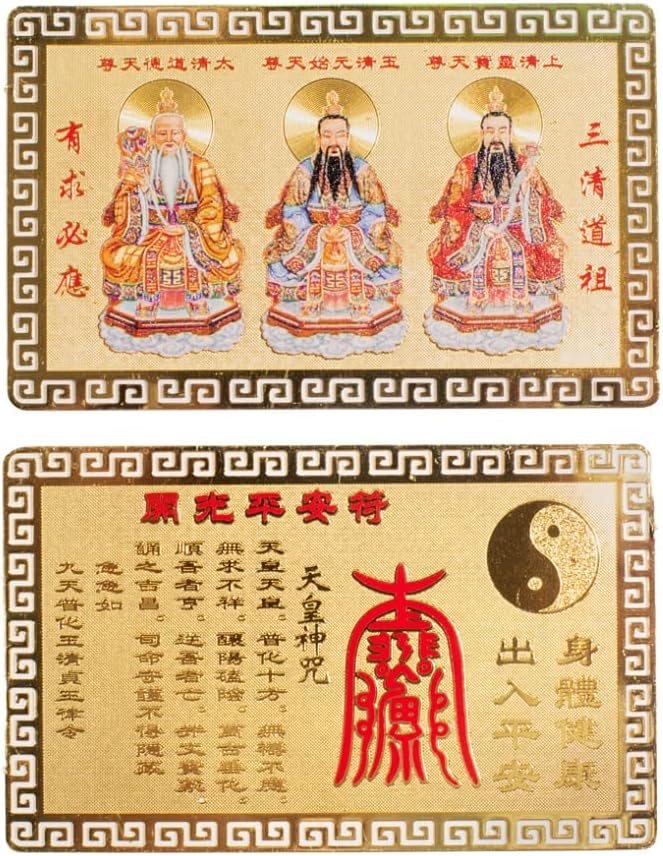 三清道祖
上清靈寶天尊
玉清元始天尊
太清道德天尊
有求必應
開光平安符
身體健康
出入平安
天皇神咒
天皇天皇。普化十方。無禱不應。
無求不祥。陽陰。萬古垂化。
順吾者亨。逆吾者亡。文寶籙
誦之吉昌。司命守護不得隱藏
急急如
九天普化玉清貞王律令